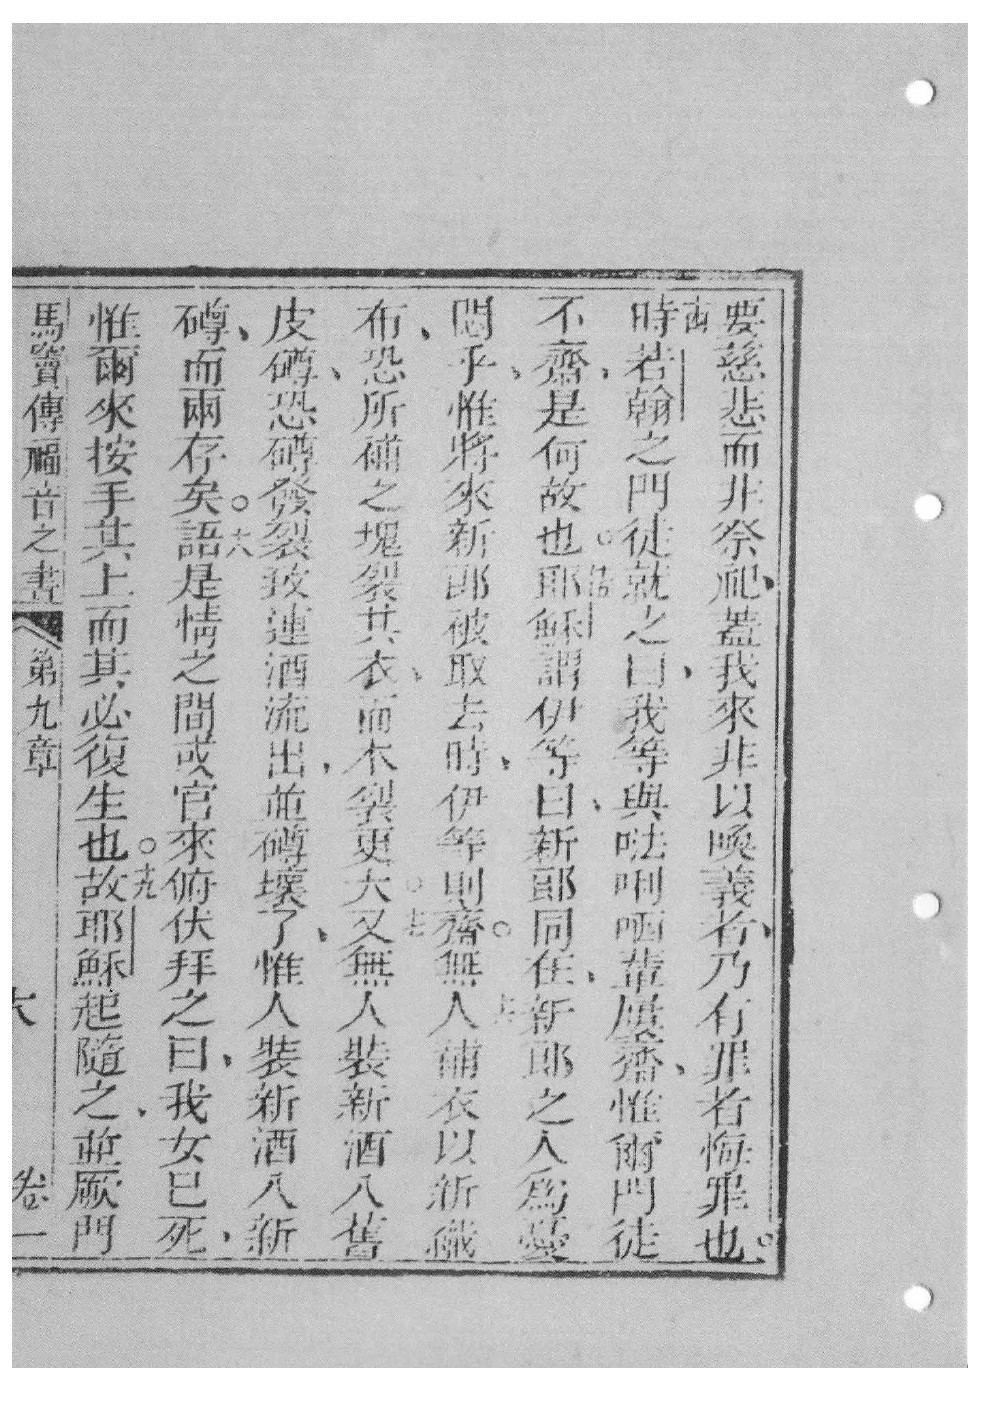 要慈悲而非祭祀、蓋我來非以喚義者、乃有罪者悔罪也。
十四時若翰之門徒就之曰、我等與𠵽唎哂輩屢齋、惟爾門徒
不齋、是何故也。十五耶穌謂伊等曰、新郎同在、新郎之人為憂
悶乎、惟將來新郎被取去時、伊等則齋。十六無人補衣以新織
布、恐所補之塊裂其衣、而衣裂更大。十七又無人裝新酒入舊
皮罇、恐罇發裂致連酒流出、並罇壞了、惟人裝新酒入新
罇、而兩存矣。十八語是情之間、或官來俯伏拜之曰、我女已死、
惟爾來按手其上而其必復生也。十九故耶穌起隨之、並厥門
馬竇傳福音之書 第九章 六 卷一